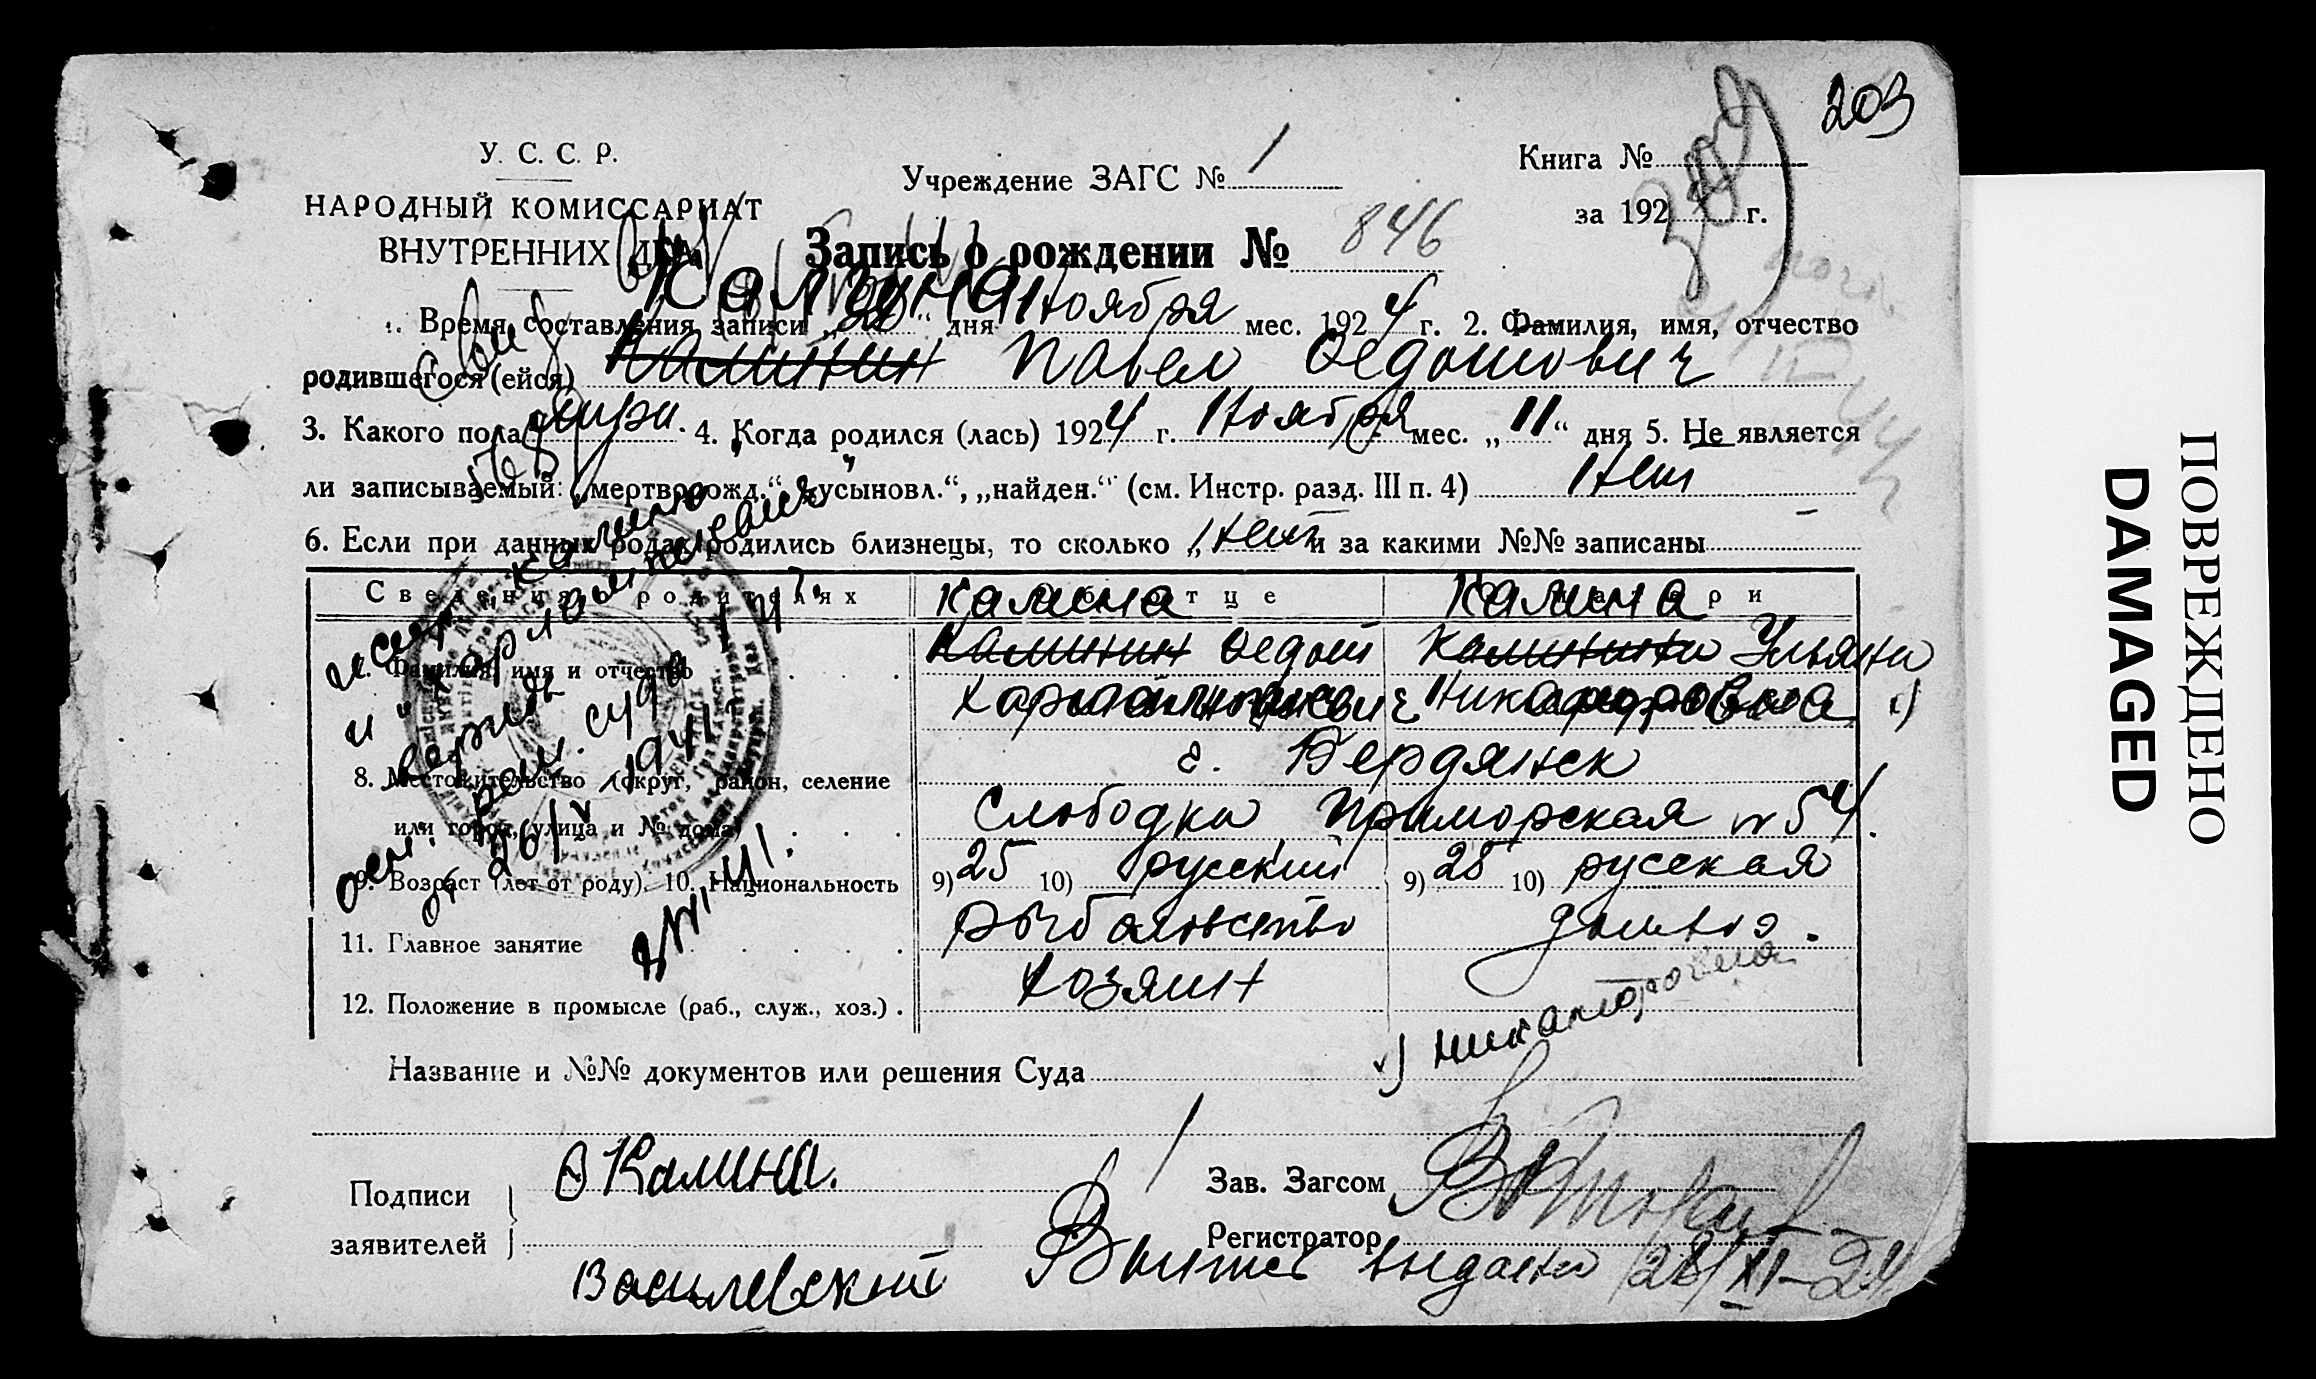 203
У. С. С. Р.
НАРОДНЫЙ КОМИССАРИАТ
ВНУТРЕННИХ ДЕЛ
Учреждение ЗАГС № 1
Книга №
за 192 г.
Запись о рождении № 846
Калина
1. Время составления записи „20“ дня Ноября мес. 1924 г. 2. Фамилия, имя, отчество
родившегося (ейся) Калинин Павел Федотович
3. Какого пола муж. 4. Когда родился (лась) 1924 г. Ноября мес. „11“ дня 5. Не является
ли записываемый: „мертворожд.“, „усыновл.“, „найден.“ (см. Инстр. разд. III п. 4) Нет
6. Если при данных родах родились близнецы, то сколько „Нет и за какими №№ записаны –
Сведения о родителях Об отце О матери
Калина Калина
7. Фамилия, имя и отчество Калинин Федот Калинина Ульяна
Никаноровна
8. Местожительство (округ, район, селение г. Бердянск
или город, улица и № дома) Слободка Приморская № 54.
9. Возраст (лет от роду). 10. Национальность 9) 25 10) русский 9) 28 10) русская
11. Главное занятие рыбальство домхоз.
12. Положение в промысле (раб., служ., хоз.) хозяин
Никаноровна
Название и №№ документов или решения Суда
Подписи
заявителей
Ф Калина.
Василевский
Зав. Загсом
Регистратор
Выпись выдана 28/XI-24
"Калина
и "Харлампиевич"
нар. суда
от 26/V 1941
ПОВРЕЖДЕНО
DAMAGED